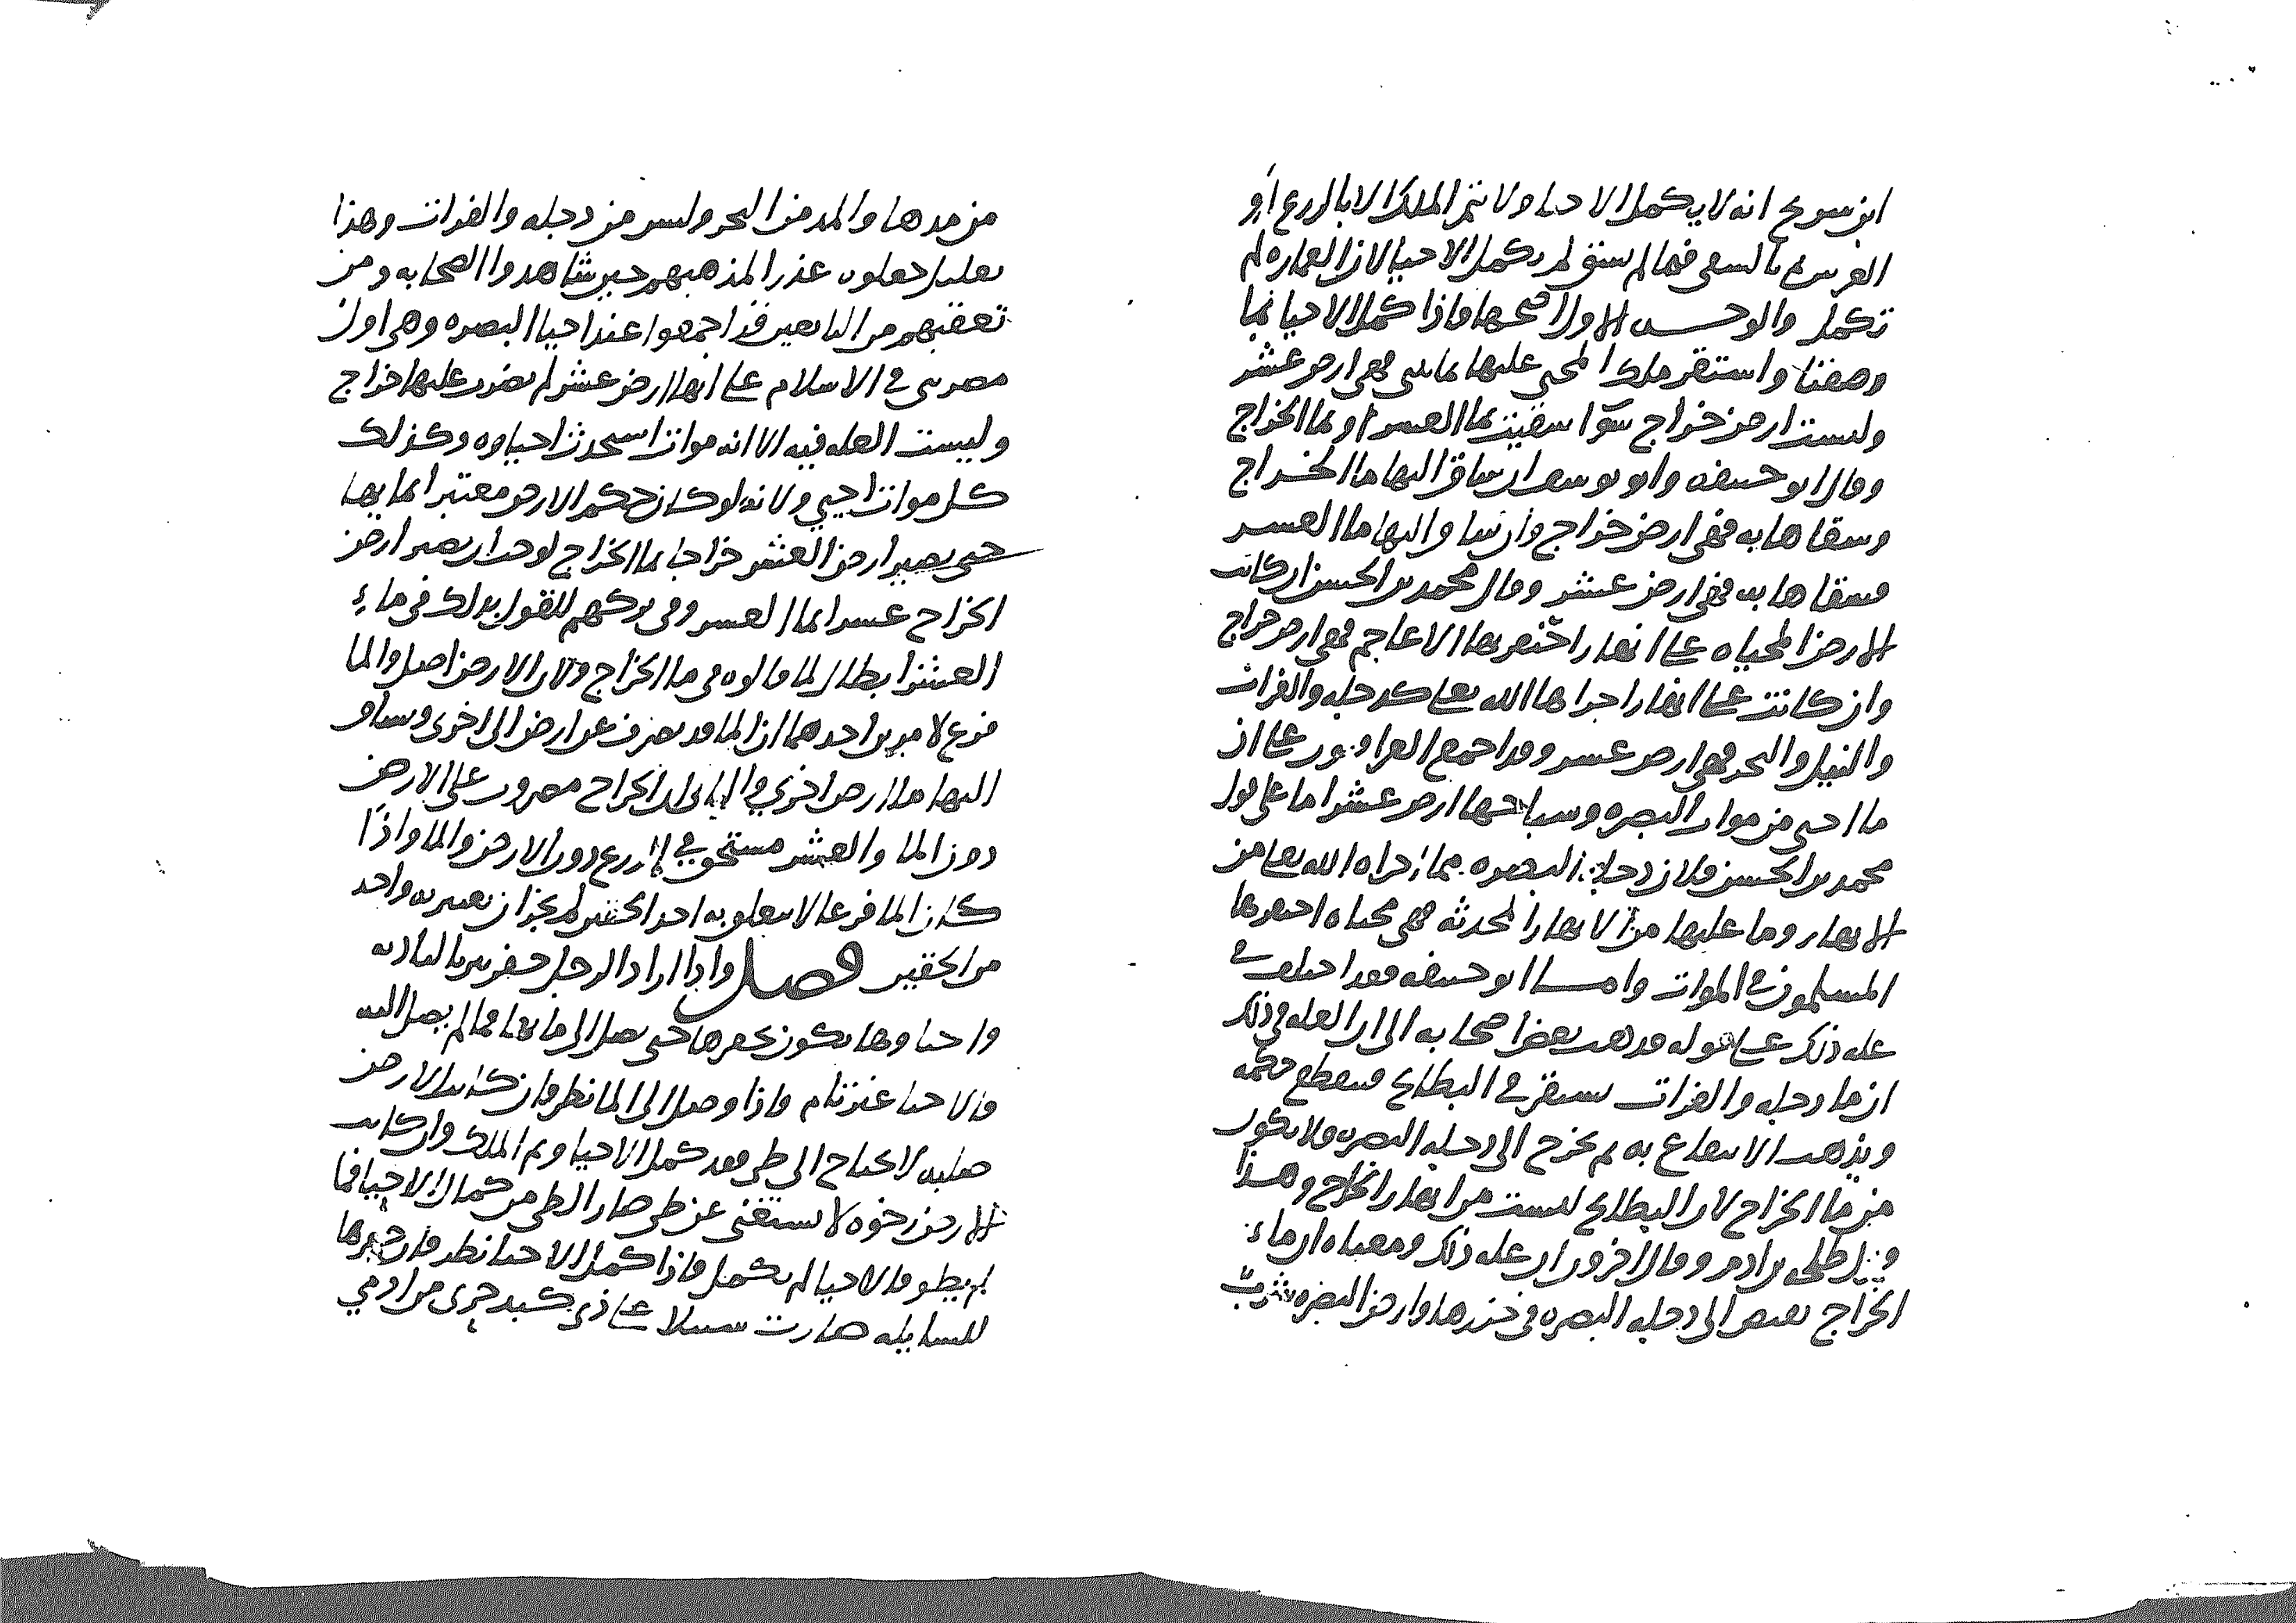 ابن سريج انه لا يكمل الاحيا ولا يتم الملك الا بالزرع او
الغرس بالسقي فما لم يسق لم يكمل الاحيا لان العماره لم
تكمل والوجه الاول اصحها فاذا كمل الاحيا بما
وصفنا واستقر ملك المحيي عليها بما بين فهي ارض عشر
وليست ارض خراج سوا سقيت بما العشر او بما الخراج
وقال ابو حنيفه وابو يوسف ان ساق اليها ما الخراج
وسقاها به فهي ارض خراج وان ساق اليها ما العشر
فسقاها به فهي ارض عشر وقال محمد بن الحسن ان كانت
الارض المحياه على انهار احتفرها الاعاجم فهي ارض خراج
وان كانت على انهار اجراها الله تعالى كدجله والفرات
والنيل والبحر فهي ارض عشر وقد اجمع العراقيون على ان
ما احيي من موات البصره وسباخها ارض عشر اما على قول
محمد بن الحسن فلان دجلة البصره مما اجراه الله تعالى من
الانهار وما عليها من الانهار المحدثه فهي محياه احتفرها
المسلمون في الموات واما ابو حنيفه فقد اختلف في
عله ذلك على قوله فذهب بعض اصحابه الى ان العله في ذلك
ان ما دجله والفرات يستقر في البطائح فينقطع حكمه
ويذهب الانتفاع به ثم يخرج الى دجله البصره فلا يكون
من ما الخراج لان البطائح ليست من انهار الخراج وهذا
قول طلحه بن ادم وقال اخرون ان عله ذلك ومعناه ان ماء
الخراج يفيض الى دجله البصره في جزرها وارض البصره شرب
من مدها والمد من البحر وليس من دجله والفرات وهذا
تعليل جعلوه عذرا لمذهبهم حين شاهدوا الصحابه ومن
تعقبهم من التابعين قد اجمعوا عند احيا البصره وهي اول
مصر بني في الاسلام على انها ارض عشر لم يضرب عليها خراج
وليست العله فيه الا انه موات استحدث احياوه وكذلك
كل موات احيي ولانه لو كان حكم الارض معتبرا بمايها
حتى يصير ارض العشر خراجا بما الخراج لوجب ان يصير ارض
الخراج عشرا بما العشر وفي تركهم للقول بذلك في ماء
العشر ابطال لما قالوه في ما الخراج ولان الارض اصل والما
فرع لا مرين احدهما ان الما قد يصرف عن ارض الى اخرى ويساق
اليها ما ارض اخرى والثاني ان الخراج مضروب على الارض
دون الما والعشر مستحق في الزرع دون الارض والما واذا
كان الما فرعا لا يتعلق به احد الحقين لم يجز ان يعتبر به واحد
من الحقين فصل واذا اراد الرجل حفر بير بالباديه
واحياوها يكون بحفرها حتى يصل الى مايها فما لم يصل اليه
فالاحيا غير تام واذا وصل الى الما نظر فان كانت الارض
صلبه لا تحتاج الى طي فقد كمل الاحيا وتم الملك وان كانت
الارض رخوه لا تستغني عن طي صار الطي من كمال الاحيا فما
لم يطو فالاحيا لم يكمل فاذا كمل الاحيا نظر فان حفرها
للسابله صارت سبيلا على ذي كبد حرى من ادمي